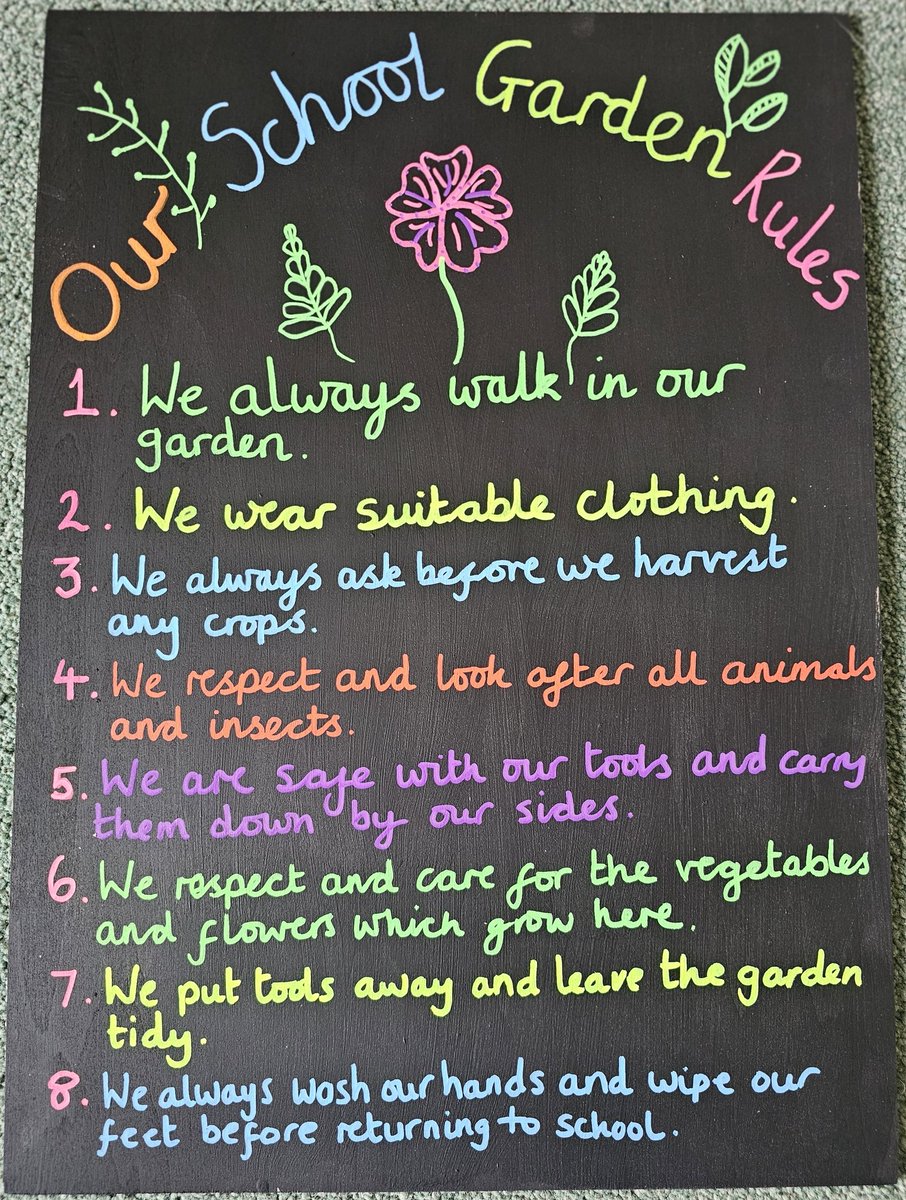 Our School Garden Rules
1. We always walk in our
garden.
2. We wear suitable clothing.
3. We always ask before we harvest
any crops.
4. We respect and look after all animals
and insects.
5. We are safe with our tools and carry
them down by our sides.
6. We respect and care for the vegetables
and flowers which grow here.
7. We put tools away and leave the garden
tidy.
8. We always wash our hands and wipe our
feet before returning to school.